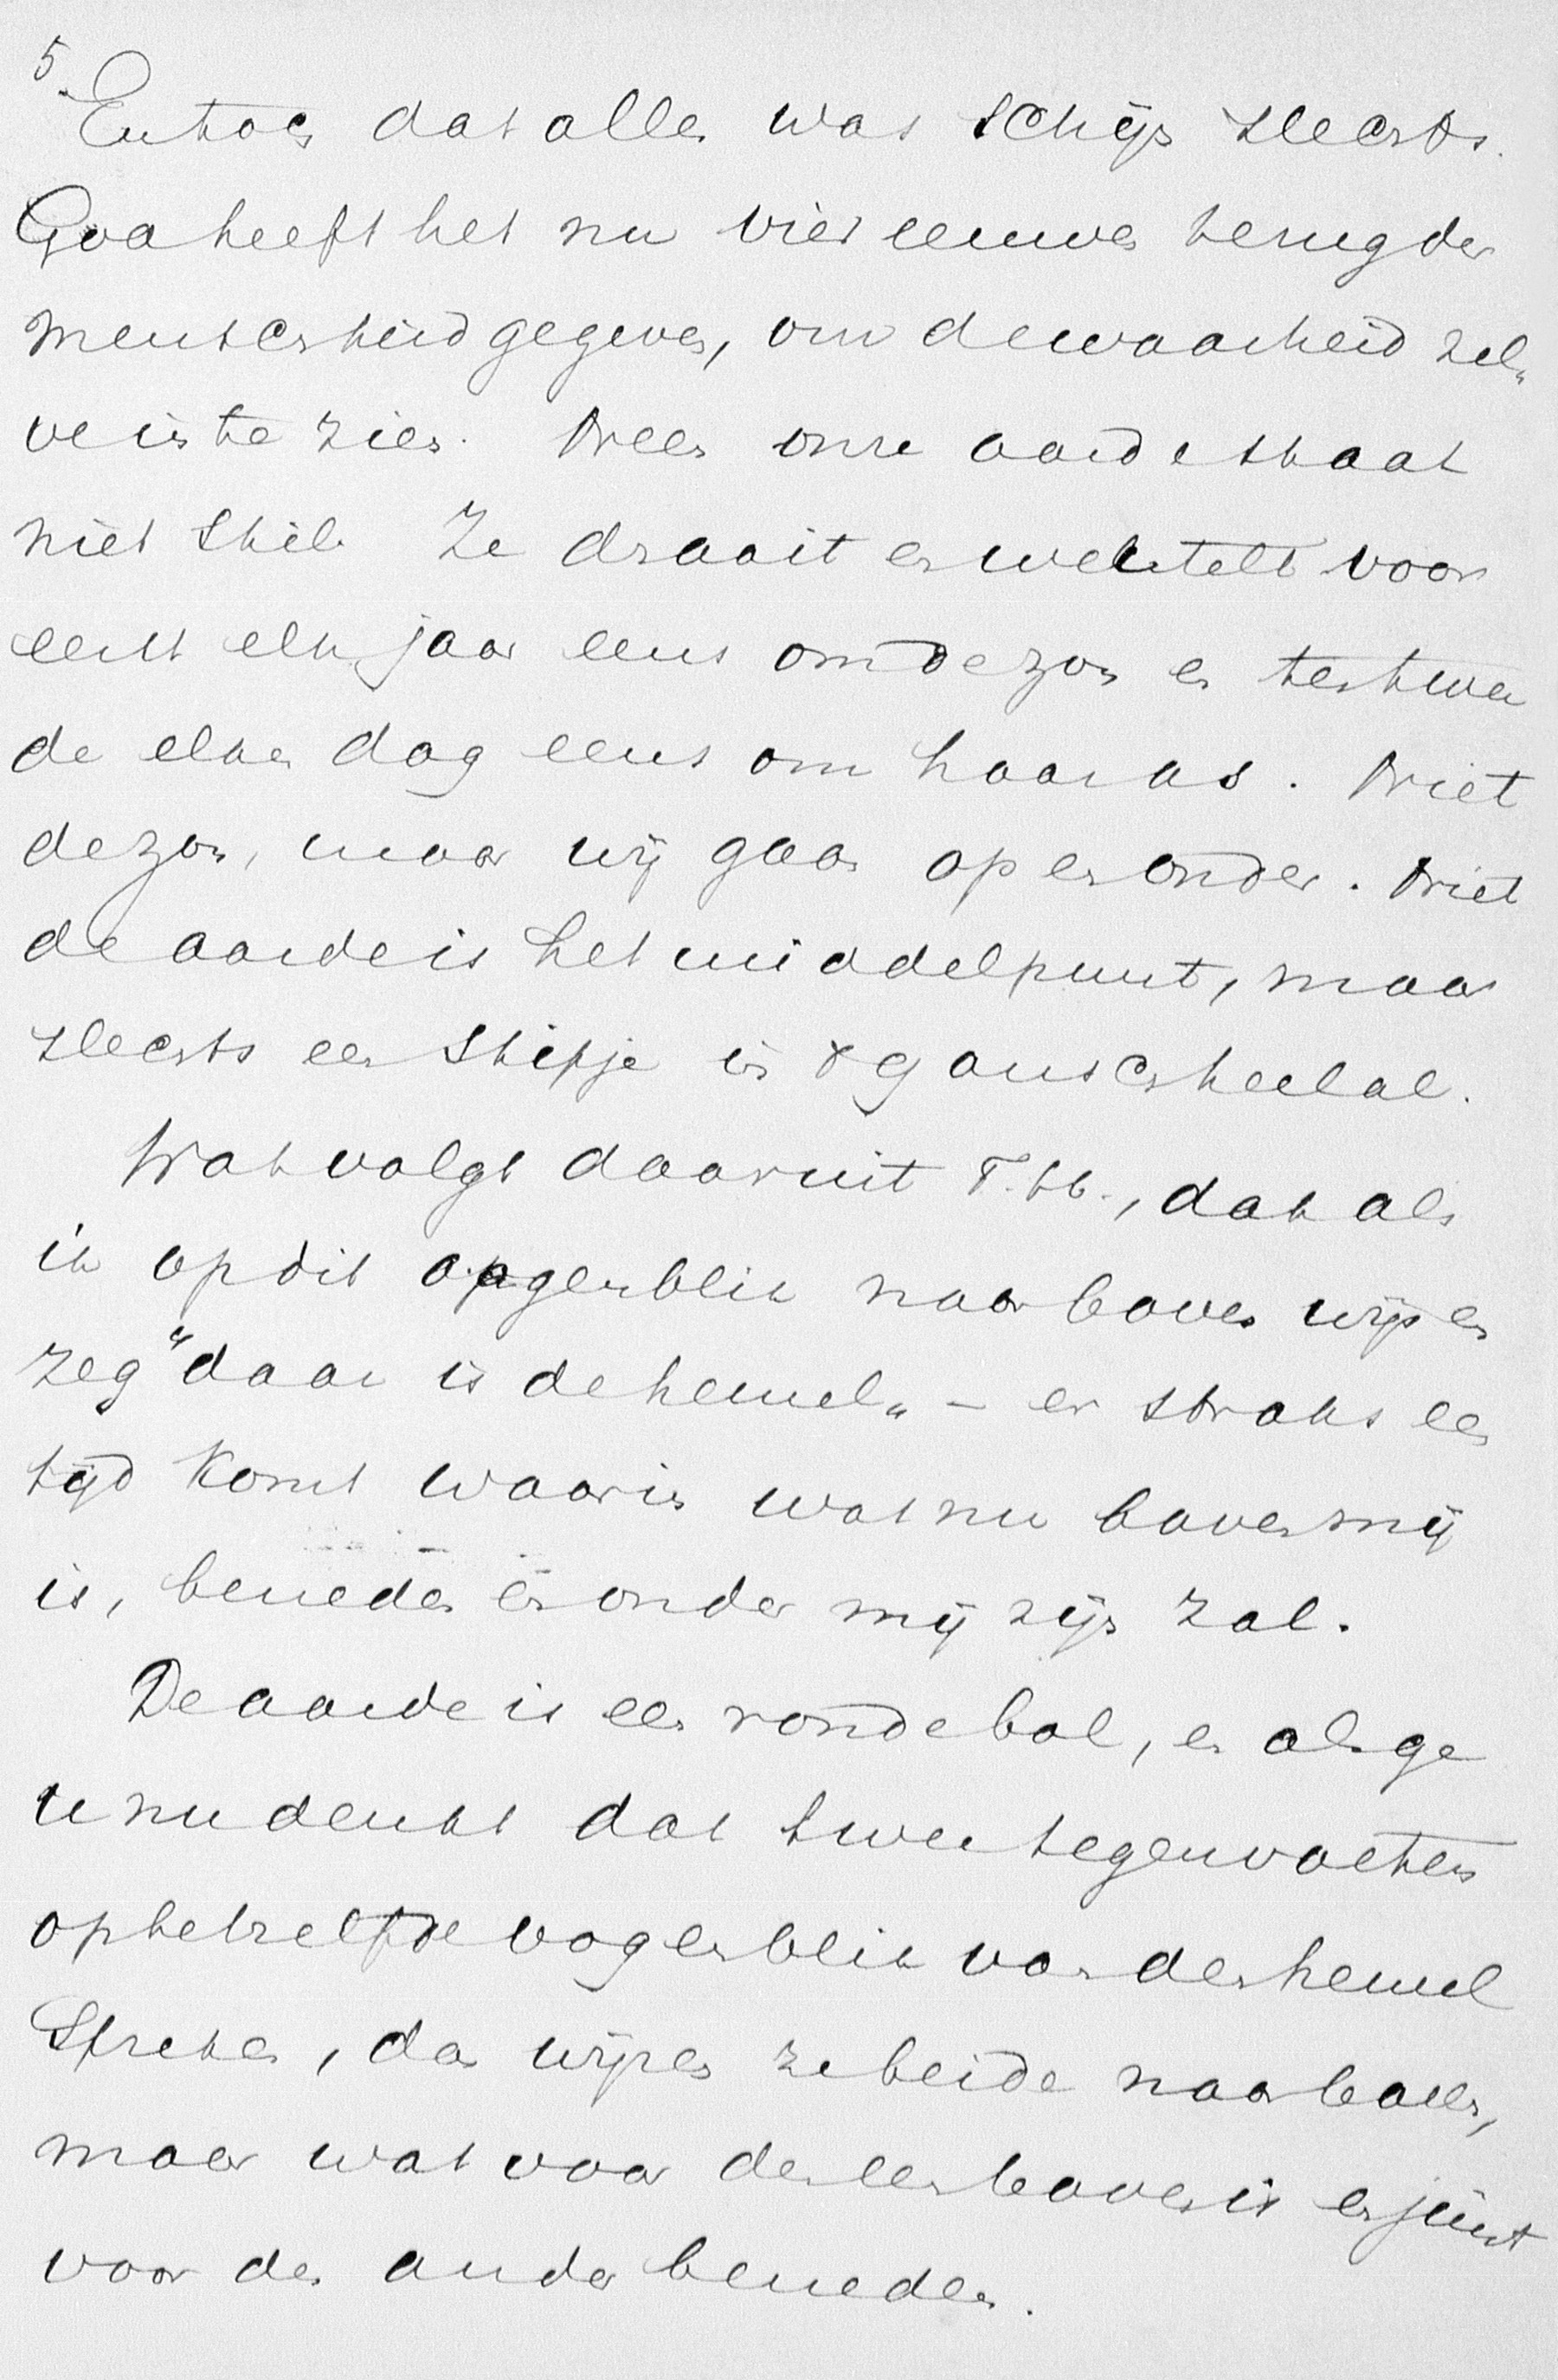 5.
En toch dat alles was schijn slechts.
God heeft het nu vier eeuwen terug der
menscheid gegeven, om de waarheid zel„
ve in te zien. Neen onze aarde staat
niet stil. Ze draait en wentelt voor
eerst elk jaar eens om de zon en ten twee
de elken dag eens om haar as. Niet
de zon, maar wij gaan op en onder. Niet
de aarde is het middelpunt, maar
slechts een stipje in 't gansch heelal.
Wat volgt daaruit T. hh., dat als
ik op dit oogenblik naar boven wijs en
zeg "daar is de hemel„ – er straks een
tijd komt waarin wat nu boven mij
is, beneden en onder mij zijn zal.
De aarde is een ronde bol, en als ge
u nu denkt dat twee tegenvoeters
op hetzelfde oogenblik van den hemel
spreken, dan wijzen ze beide naar boven,
maar wat voor den een boven is is juist
voor den ander beneden.